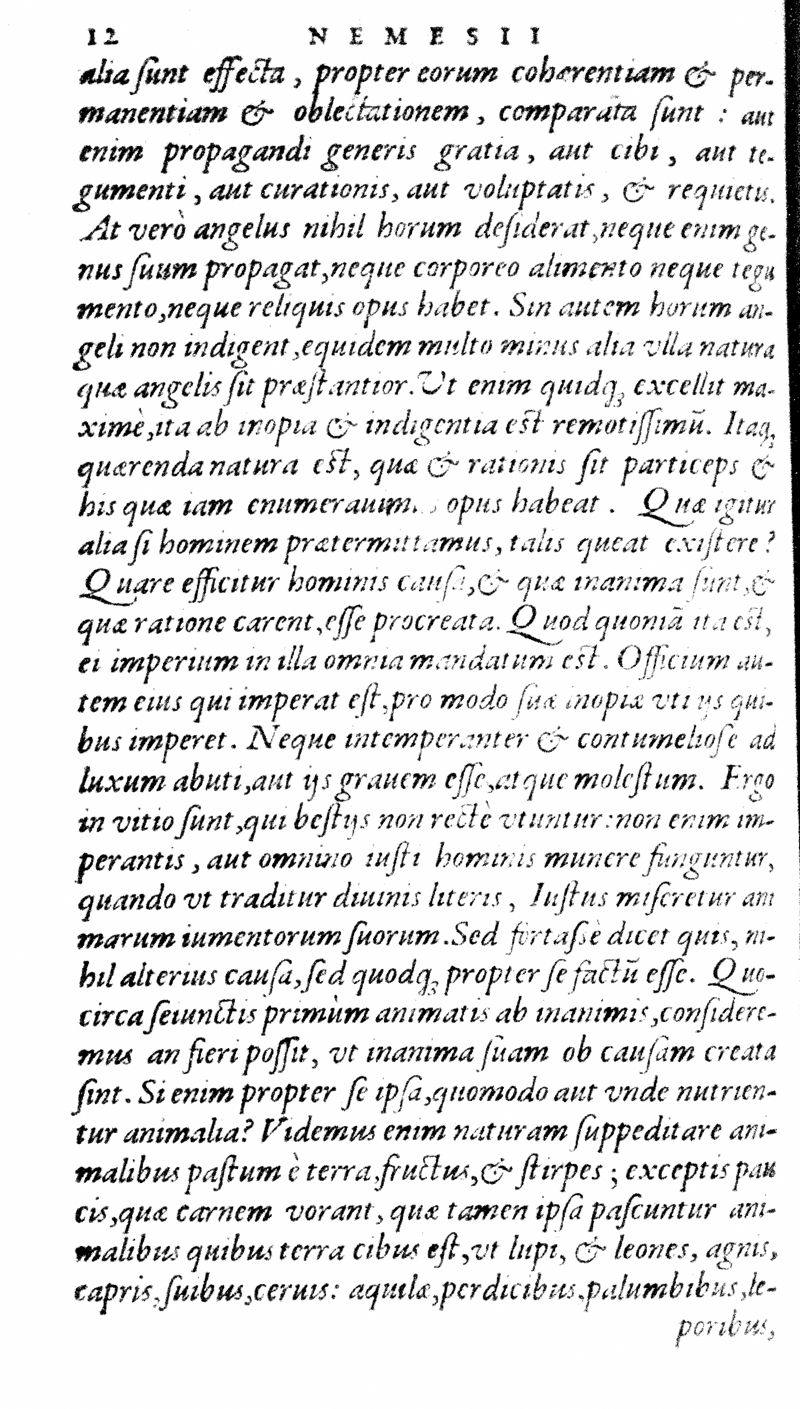 12 NEMESII
alia ſunt effecta, propter eorum cohærentiam & per-
manentiam & oblectationem, comparata ſunt : aut
enim propagandi generis gratia, aut cibi, aut te-
gumenti, aut curationis, aut voluptatis, & requietis.
At verò angelus nihil horum deſiderat, neque enim ge-
nus ſuum propagat, neque corporeo alimento neque tegu
mento, neque reliquis opus habet. Sin autem horum an-
geli non indigent, equidem multo minus alia vlla natura
quæ angelis ſit præſtantior. Ut enim quidqꝫ excellit ma-
ximè, ita ab inopia & indigentia est remotiſſimũ. Itaqꝫ
quærenda natura est, quæ & rationis ſit particeps &
his quæ iam enumerauim. opus habeat. Quæ igitur
alia ſi hominem prætermittamus, talis queat exiſtere?
Quare efficitur hominis cauſa, & quæ inanima ſunt, &
quæ ratione carent, eſſe procreata. Quod quoniã ita est,
ei imperium in illa omnia mandatum est. Officium au-
tem eius qui imperat eſt, pro modo ſuæ inopiæ vti ijs qui-
bus imperet. Neque intemperanter & contumelioſe ad
luxum abuti, aut ijs grauem eſſe, atque moleſtum. Ergo
in vitio ſunt, qui beſtijs non rectè vtuntur: non enim im-
perantis, aut omnino iusti hominis munere funguntur,
quando vt traditur diuinis literis, Iuſtus miſeretur ani
marum iumentorum ſuorum. Sed fortaſsè dicet quis, ni-
hil alterius cauſa, ſed quodqꝫ propter ſe factũ eſſe. Quo-
circa ſeiunctis primùm animatis ab inanimis, conſidere-
mus an fieri poſſit, vt inanima ſuam ob cauſam creata
ſint. Si enim propter ſe ipſa, quomodo aut vnde nutrien-
tur animalia? Videmus enim naturam ſuppeditare ani-
malibus paſtum è terra, fructus, & ſtirpes ; exceptis pau
cis, quæ carnem vorant, quæ tamen ipſa paſcuntur ani-
malibus quibus terra cibus eſt, vt lupi, & leones, agnis,
capris, ſuibus, ceruis: aquilæ, perdicibus, palumbibus, le-
poribus,